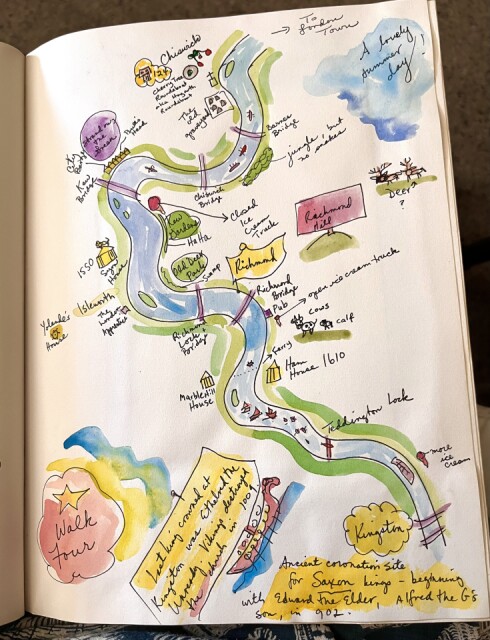 → To
London
Town
A lovely
summer
day!
Chiswick
124
Cherry Tree
Roundabout
aka Hogarth
Roundabout
The
old
graveyard
Barnes
Bridge
jungle, but
no snakes
Strand on
the Green
City
Barge
Kew
Bridge
Chiswick
Bridge
Deer?
?
Kew
Gardens
HaHa
closed
Ice
Cream
Truck
Richmond
Hill
1550
Syon
House
Old Deer
Park
Swamp
Richmond
Isleworth
Yolanda's
House
The
London
Apprentice
Richmond
Lock
Bridge
Richmond
Bridge
Pub
open ice cream truck
cows
calf
ferry
Ham
House 1610
Marble Hill
House
Teddington Lock
more
ice
cream
Kingston
Walk
Four
Last king crowned at
Kingston was Ethelred the
Unready. Vikings destroyed
the church in 1009
Ancient coronation site
for Saxon kings - beginning
with Edward the Elder, Alfred the G's
son, in 902.